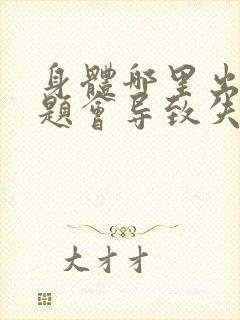 身體哪里出
題會导致失
大才才